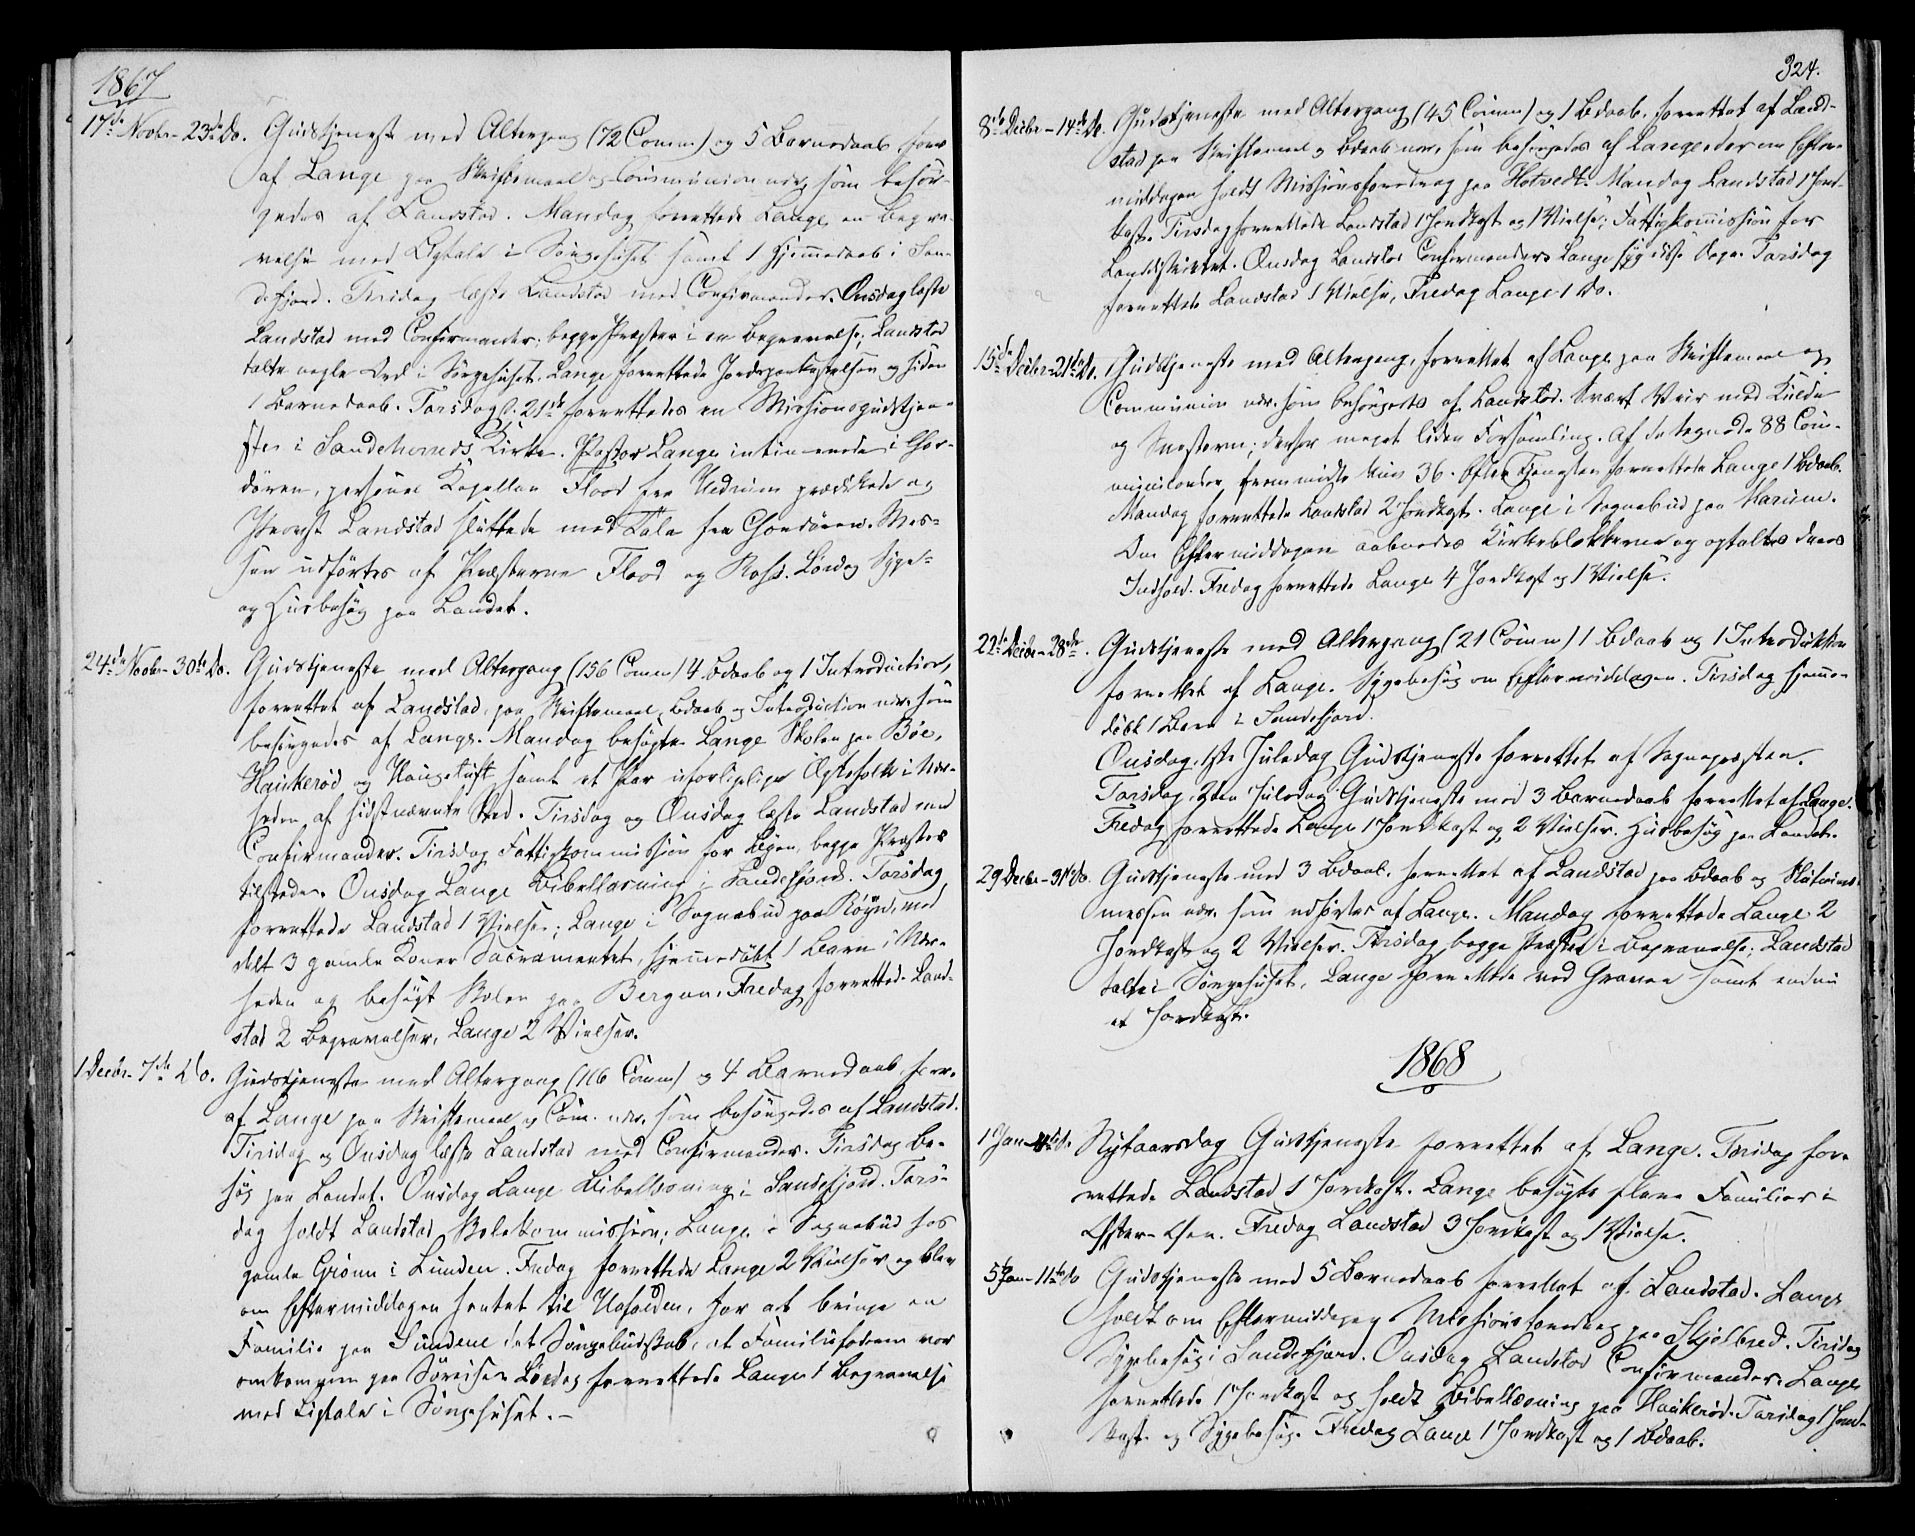 1867
17de Novbr - 23de Do. Gudstjeneste med Altergang (72 Comm) og 5 Barnedaab forr.
af Lange paa Skriftemaal og Communion nær, som besör-
gedes af Landstad. Mandag forrettede Lange en Begra-
velse med Ligtale i Sörgehuset samt 1 Hjemmedaab i San-
defjord. Tirsdag læste Landstad med Confirmander. Onsdag læste
Landstad med Confirmander; begge Præster i en Begravelse; Landstad
talte nogle Ord i Sörgehuset. Lange forrettede Jordspaakastelsen og siden
1 Barnedaab. Torsdag d. 21de forrettedes en Missionsgudstjene-
ste i Sandeherreds Kirke. Pastor Lange intimerede i Chor-
dören, personel Kapellan Flood fra Hedrum prædikede og
Provst Landstad sluttede med Tale fra Chordören. Mes-
sen udförtes af Præsterne Flood og Ross. Lördag Syge-
og Husbesög paa Landet.
24de Novbr - 30te Do. Gudstjeneste med Altergang (156 Comm) 4 Bdaab og 1 Introduction,
forrettet af Landstad, paa Skriftemaal, Bdaab og Introduction nær, som
besörgedes af Lange. Mandag besögte Lange Skolen paa Böe,
Haukeröd og Haugetuft samt et Par uforligelige Ægtefolk i Nær-
heden af sidstnævnte Sted. Tirsdag og Onsdag læste Landstad med
Confirmander. Tirsdag Fattigkommission for Byen, begge Præster
tilstede. Onsdag Lange Bibellæsning i Sandefjord. Torsdag
forrettede Landstad 1 Vielse; Lange i Sognebud paa Röyn, med
delt 3 gamle Koner Sacramentet, hjemmedöbt 1 Barn i Nær-
heden og besögt Skolen paa Bergan. Fredag forrettede Land-
stad 2 Begravelser, Lange 2 Vielser.
1 Decbr - 7de Do. Gudstjeneste med Altergang (116 Comm) og 4 Barnedaab forr.
af Lange paa Skriftemaal og Com. nær, som besörgedes af Landstad.
Tirsdag og Onsdag læste Landstad med Confirmander. Tirsdag Be-
sög paa Landet. Onsdag Lange Bibellæsning i Sandefjord. Tors-
dag holdt Landstad Skolekommission; Lange i Sognebud hos
gamle Grönn i Lunden. Fredag forrettede Lange 2 Vielser og blev
om Eftermiddagen hentet til Huset, for at bringe en
Familie paa Sundene det Sörgebudskab, at Familiefaderen var
omkommen paa Söreise. Lördag forrettede Lange 1 Begravelse
med Ligtale i Sörgehuset. -
324.
8de Decbr - 14de Do. Gudstjeneste med Altergang (45 Comm) og 1 Bdaab, forrettet af Land-
stad paa Skriftemaal og Bdaab nær, som besörgedes af Lange, der om Efter-
middagen holdt Missionsforedrag paa Hotvedt. Mandag Landstad 1 Jord-
kast. Tirsdag forrettede Landstad 1 Jordkast og 1 Vielse; Fattigkommission for
Landdistriktet. Onsdag Landstad Confirmander. Lange syg disse Dage. Torsdag
forrettede Landstad 1 Vielse, Fredag Lange 1 Do.
15de Decbr - 21de Do. Gudstjeneste med Altergang, forrettet af Lange paa Skriftemaal og
Communion nær, som besörgedes af Landstad. Svært Veir med Kulde
og Snestorm; derfor meget liden Forsamling. Af de tegnede 88 Com-
munikanter fremmödte kun 36. Efter Tjenesten forrettede Lange 1 Bdaab.
Mandag forrettede Landstad 2 Jordkast. Lange i Sognebud paa Marum.
Om Eftermiddagen aabnedes Kirkeblokkerne og optaltes deres
Indhold. Fredag forrettede Lange 4 Jordkast og 1 Vielse.
22de Decbr - 28de. Gudstjeneste med Altergang (21 Comm) 1 Bdaab og 1 Introduktion
forrettet af Lange. Sygebesög om Eftermiddagen. Tirsdag hjemme-
döbt 1 Barn i Sandefjord.
Onsdag, 1ste Juledag Gudstjeneste forrettet af Sognepræsten.
Torsdag, 2den Juledag Gudstjeneste med 3 Barnedaab forrettet af Lange.
Fredag forrettede Lange 1 Jordkast og 2 Vielser. Husbesög paa Landet.
29 Decbr - 31 Do. Gudstjeneste med 3 Bdaab, forrettet af Landstad paa Bdaab og Slutnings-
messen nær, som udförtes af Lange. Mandag forrettede Lange 2
Jordkast og 2 Vielser. Tirsdag begge Præster i Begravelse; Landstad
talte i Sörgehuset, Lange forrettede ved Graven samt endnu
et Jordkast.
1868
1 Jan - 4de d. Nytaarsdag Gudstjeneste forrettet af Lange. Tirsdag for-
rettede Landstad 1 Jordkast. Lange besögte flere Familier i
Fredag Landstad 3 Jordkast og 1 Vielse.
5te Jan - 11te do Gudstjeneste med 5 Barnedaab forrettet af Landstad. Lange
holdt om Eftermiddagen Missionsforedrag paa Skjelbred. Tirsdag
Sygebesög i Sandefjord. Onsdag Landstad Confirmander. Lange
forrettede 1 Jordkast og holdt Bibellæsning paa Haukeröd. Torsdag 1 Jord-
kast og Sygebesög. Fredag Lange 1 Jordkast og 1 Bdaab.